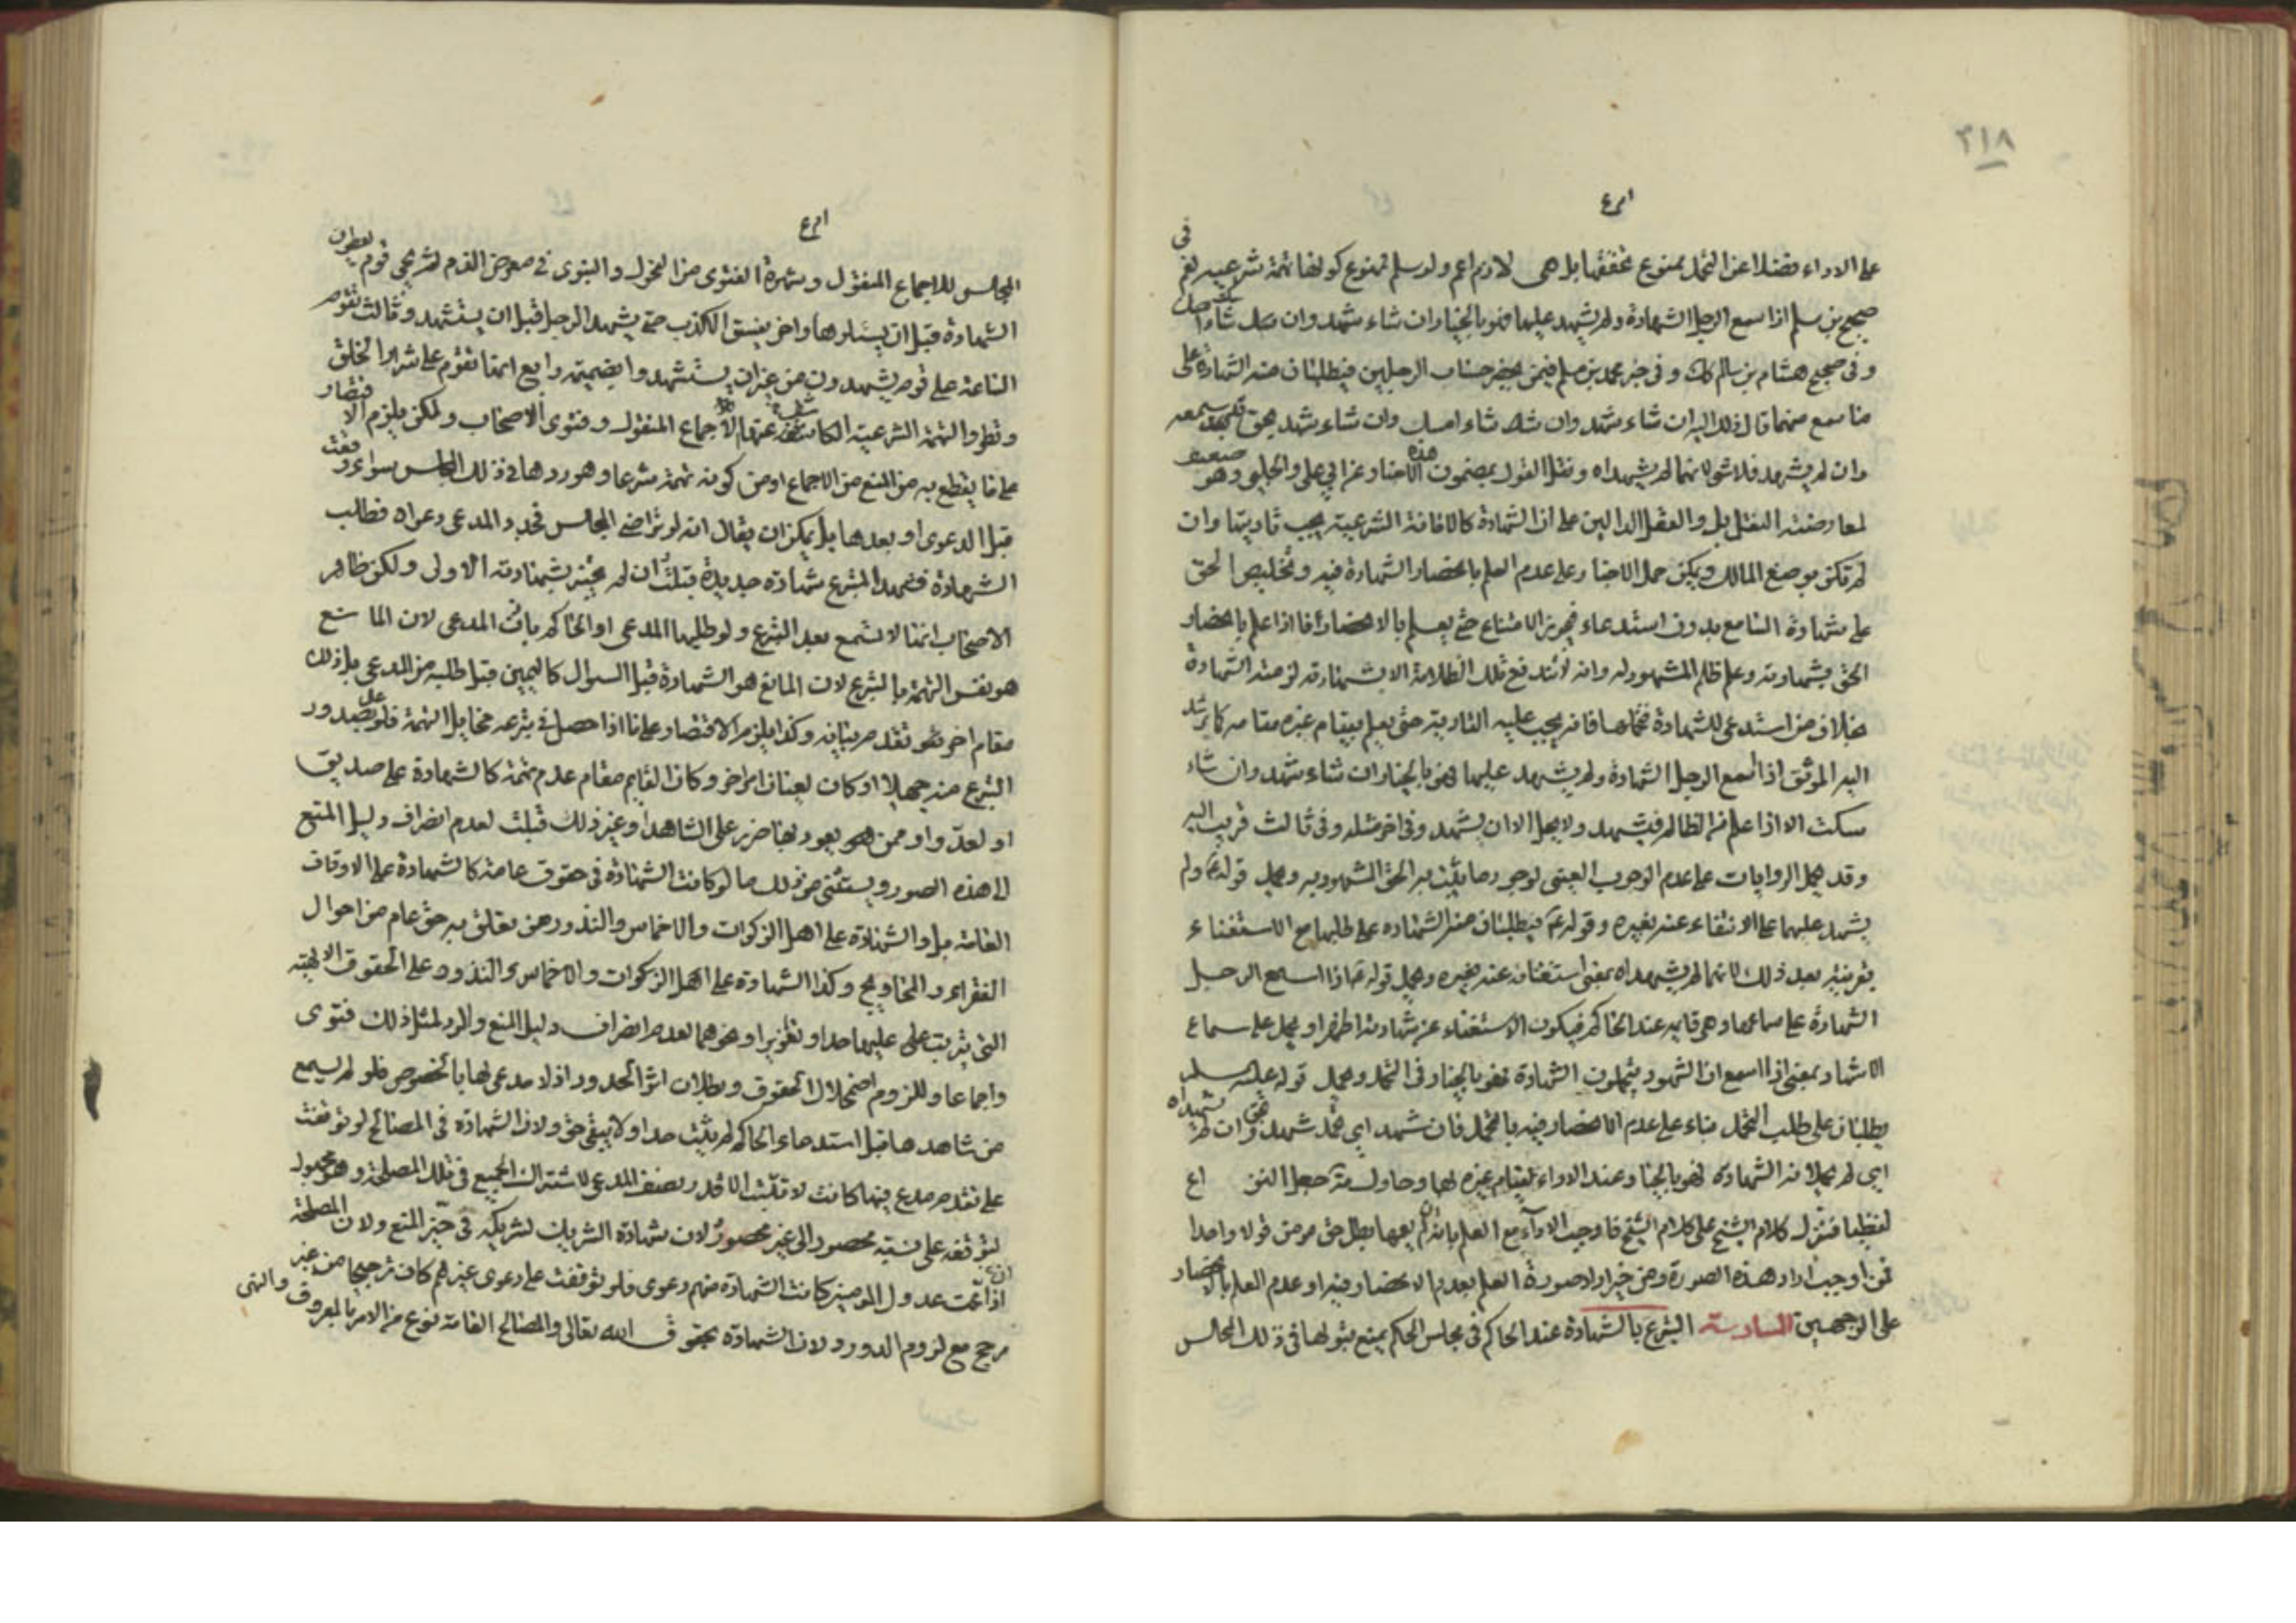 ٣١٨
على الاداء فضلا عن التحمل بمنوع تحققها بل هي لازم اعم ولو سلم تمنوع كونها تهمة شرعيه نعم في
صحيح بن مسلم اذا سمع الرجل الشهادة ولم يشهد عليها فهو بالخيار ان شاء شهد وان شاء
وفى صحيح هشام بن سالم كك وفى خبر محمد بن مسلم فيمن يحضر حساب الرجلين فيطلبان منه الشهادة على
ما سمع منهما قال ذلك اليه ان شاء شهد وان شاء امسك وان شاء شهد بحق قد سمعه
وان لم يشهد فلا شئ لانهما لم يشهداه ونقل القول بمضمون هذه الاخبار عن ابي على والحلبي وهو ضعيف
لمعارضته النقل بل والعقل الدالين على ان الشهادة كالامانة الشرعية يجب تاديتها وان
لم تكن بوضع المالك ويمكن حمل الاخبار على عدم العلم بانحصار الشهادة فيه وتخليص الحق
على شهادة السامع بدون استدعاء فيجوز الامتناع حتى يعلم بالانحصار اما اذا علم بانحصار
الحق بشهادته وعلم ظلم المشهود له وانه لا تندفع تلك الظلامة الا بشهادته لزمته الشهادة
بخلاف من استدعى للشهادة فتحملها فانه يجب عليه التادية حتى يعلم بقيام غيره مقامه كما يرشد
اليه الموثق اذا سمع الرجل الشهادة ولم يشهد عليها فهو بالخيار ان شاء شهد وان شاء
سكت الا اذا علم من الظالم فيشهد ولا يحل الا ان يشهد وفى اخر مثله وفى ثالث قريب اليه
وقد تحمل الروايات على عدم الوجوب العينى لوجود ما يثبت به الحق المشهود به وحمل قوله ع ولم
يشهد عليها على الاكتفاء عنه بغيره وقوله ع فيطلبان منه الشهادة على طلبها مع الاستغناء
بقرينة بعد ذلك لانهما لم يشهداه بمعنى استغنائه عنه بغيره وحمل قوله ع اذا سمع الرجل
الشهادة على سماعها وهى قايمه عند الحاكم فيكون الاستغناء عن شهادته اظهر او يحمل على سماع
الاشهاد بمعنى اذا سمع ان الشهود يتحملون الشهادة فهو بالخيار فى التحمل وحمل قوله عليه السلم
يطلبان على طلب التحمل بناء على عدم الانحصار فيه بالتحمل فان شهد اي تحمل شهد بحق وان لم يشهداه
اي لم يحملانه الشهادة فهو بالخيار عند الاداء لقيام غيره لها وحاول مة جعل النزاع
لفظيا فنزل كلام الشيخ على كلام الشيخ فاوجب الاداء مع العلم بانه ان لم يقمها بطل حق مؤمن قولا واحدا
فمن اوجب اراد هذه الصورة ومن خير اراد صورة العلم بعدم الانحصار فيه او عدم العلم بالانحصار
على الوجهين السادسة التبرع بالشهادة عند الحاكم فى مجلس الحكم يمنع قبولها فى ذلك المجالس
المجالس للاجماع المنقول وشهرة الفتوى من الفحول والنبوى فى معرض الذم ثم يجئ قوم يعطون
الشهادة قبل ان يسئلوها واخر يفشو الكذب حتى يشهد الرجل قبل ان يستشهد وثالث تقوم
الساعة على قوم يشهدون من غير ان يستشهدوا بضميمة رابع انها تقوم على شرار الخلق
وتطرق التهمة الشرعية الكاشف عنها الاجماع المنقول وفتوى الاصحاب ولكن يلزم الاقتصار
على ما يقطع به من المنع من الاجماع او من كونه تهمة شرعا وهو ردها فى ذلك المجلس سواء وقعت
قبل الدعوى او بعدها بل يمكن ان يقال انه لو تراضى المجالس فجدد المدعى دعواه فطالب
الشهادة فشهد المتبرع شهادة جديدة قبلت وان لم يجتز بشهادته الاولى ولكن ظاهر
الاصحاب انها لا تسمع بعد التبرع ولو طلبها المدعى او الحاكم باذن المدعى لان المانع
هو نفس التهمة بالتبرع لان المانع هو الشهادة قبل السوال كاليمين قبل طلبه من المدعى بل ذلك
مقام اخر قد تقدم بيانه وكذا يلزم الاقتصار على ما اذا حصل فى تبرعه مخايل التهمة فلو على صدور
التبرع منه جهلا او كان لعنان امر اخر وكان القايم مقام عدم تهمة كالشهادة على صديق
او لعدو او ممن هو يعود بها ضرر على الشاهد او غير ذلك قبلت لعدم انصراف دليل المنع
الى هذه الصور ويستثنى من ذلك ما لو كانت الشهادة فى حقوق عامة كالشهادة على الاوقاف
العامة بل والشهادة على اهل الزكوات والاخماس والنذور ممن تعلق به حق عام من احوال
الفقراء والمحاويج وكذا الشهادة على اهل الزكوات والاخماس والنذور وعلى الحقوق الالهية
التى يترتب على عليها حدا او تعزيرا ونحوهما لعدم انصراف دليل المنع والرد لمثل ذلك فتوى
واجماعا وللزوم اضمحلال الحقوق وبطلان اثر الحدود اذ لا مدعى لها بالخصوص فلو لم يسمع
من شاهدها قبل استدعاء الحاكم لم يثبت حدا ولا يبقى حق ولان الشهادة فى المصالح لو توقفت
على تقدم مدع فيها كانت لا تثبت الا قدر نصف المدعى لاشتراك الجميع فى تلك المصلحة وهو مجهول
لتوقفه على نسبة محصور الى غير محصور لان شهادة الشريك لشريكه فى حيز المنع ولان المصلحة
اذا عمت عدول المومنين كانت الشهادة منهم دعوى فلو توقفت على دعوى غيرهم كان ترجيحا من غير
مرجح مع لزوم الدور ولان الشهادة بحقوق الله تعالى والمصالح العامة نوع من الامر بالمعروف والنهى